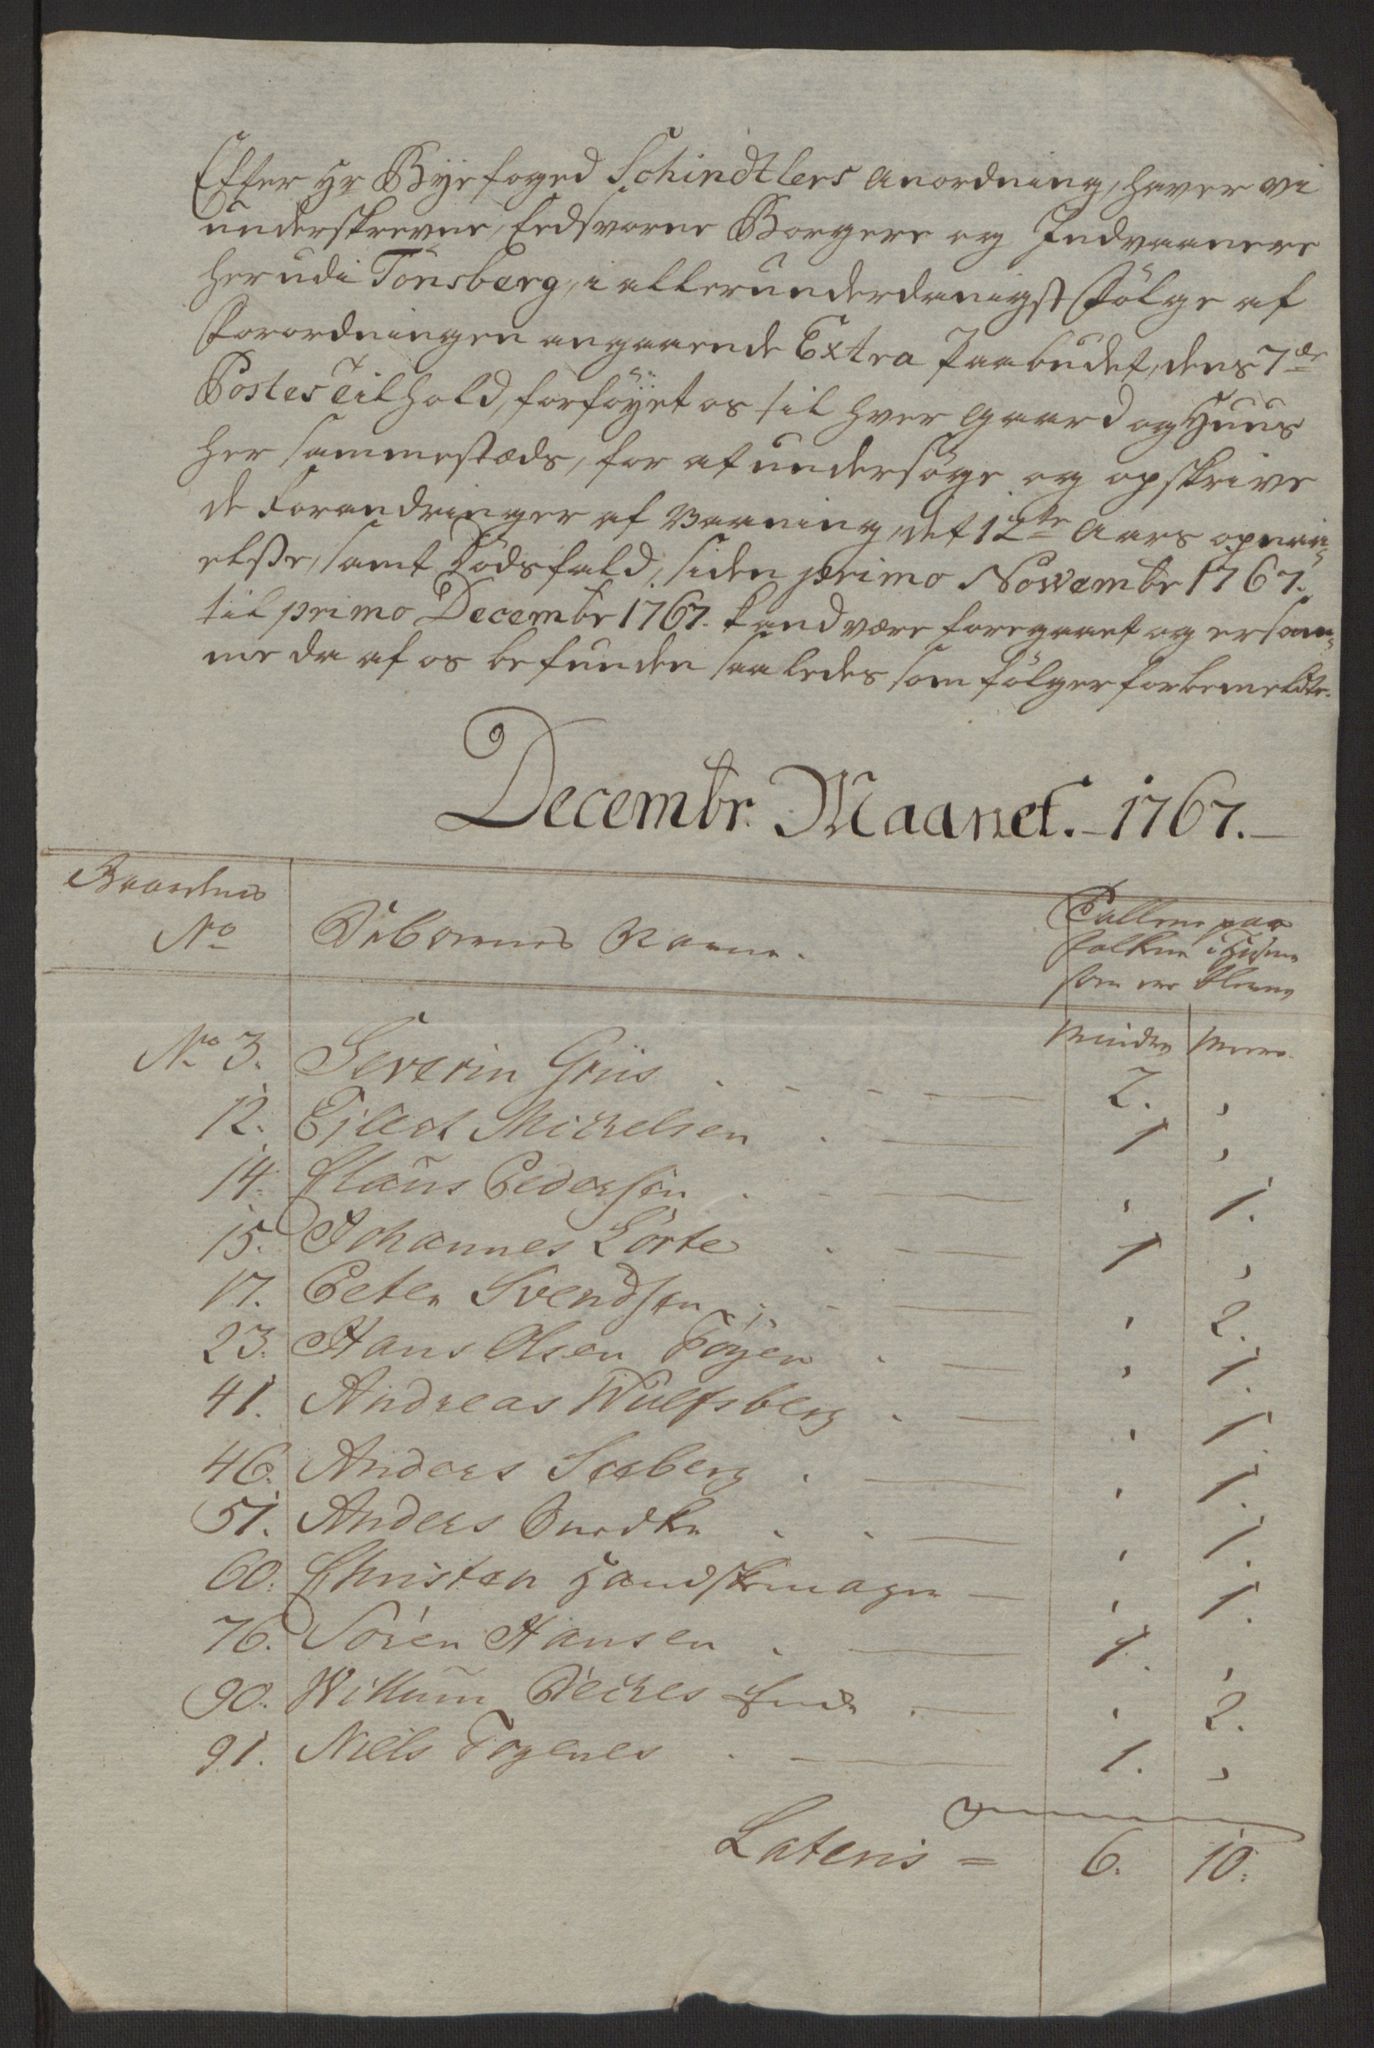 Efter Hr Byefoged Schindtlers Anordning, haver vi
underskrevne, Eedsvorne Borgere og Indvaanere
her udi Tönsberg, i allerunderdanigst Fölge af
Forordningen angaaende Extra Paabudet, dens 7de
Postes Tilhold, forföÿet os til hver Gaard og Huus
her sammestæds, for at undersöge og opskrive
de Forandringer af Vaaning, det 12te Aars opnaa=
elsse, samt Dödsfald, siden primo Novembr 1767.
til primo Decembr 1767. kand være foregaaet og er sam=
me da af os befunden saaledes som fölger for bemeldte.
Decembr. Maanet. 1767.
Gaardenes Tallene paa
No Beboernes Navne. Folkene i Husene
som ere blevne
Mindre Meere
No 3. Severin Griis 2. ,
12. Ejlert Michelsen 1 ,
14. Claus Pedersen , 1.
15. Johannes Lörte 1 ,
17. Peter Svendsen , 2.
23. Hans Olsen Föyen , 1.
41. Andreas Wulfsberg , 1.
46. Anders Seeberg , 1.
51. Anders , 1.
60. Christen Handskemager , 1.
76. Sören Hansen 1. ,
90. Willum Enke , 2.
91. Niels 1. ,
Lateris = 6. 10.